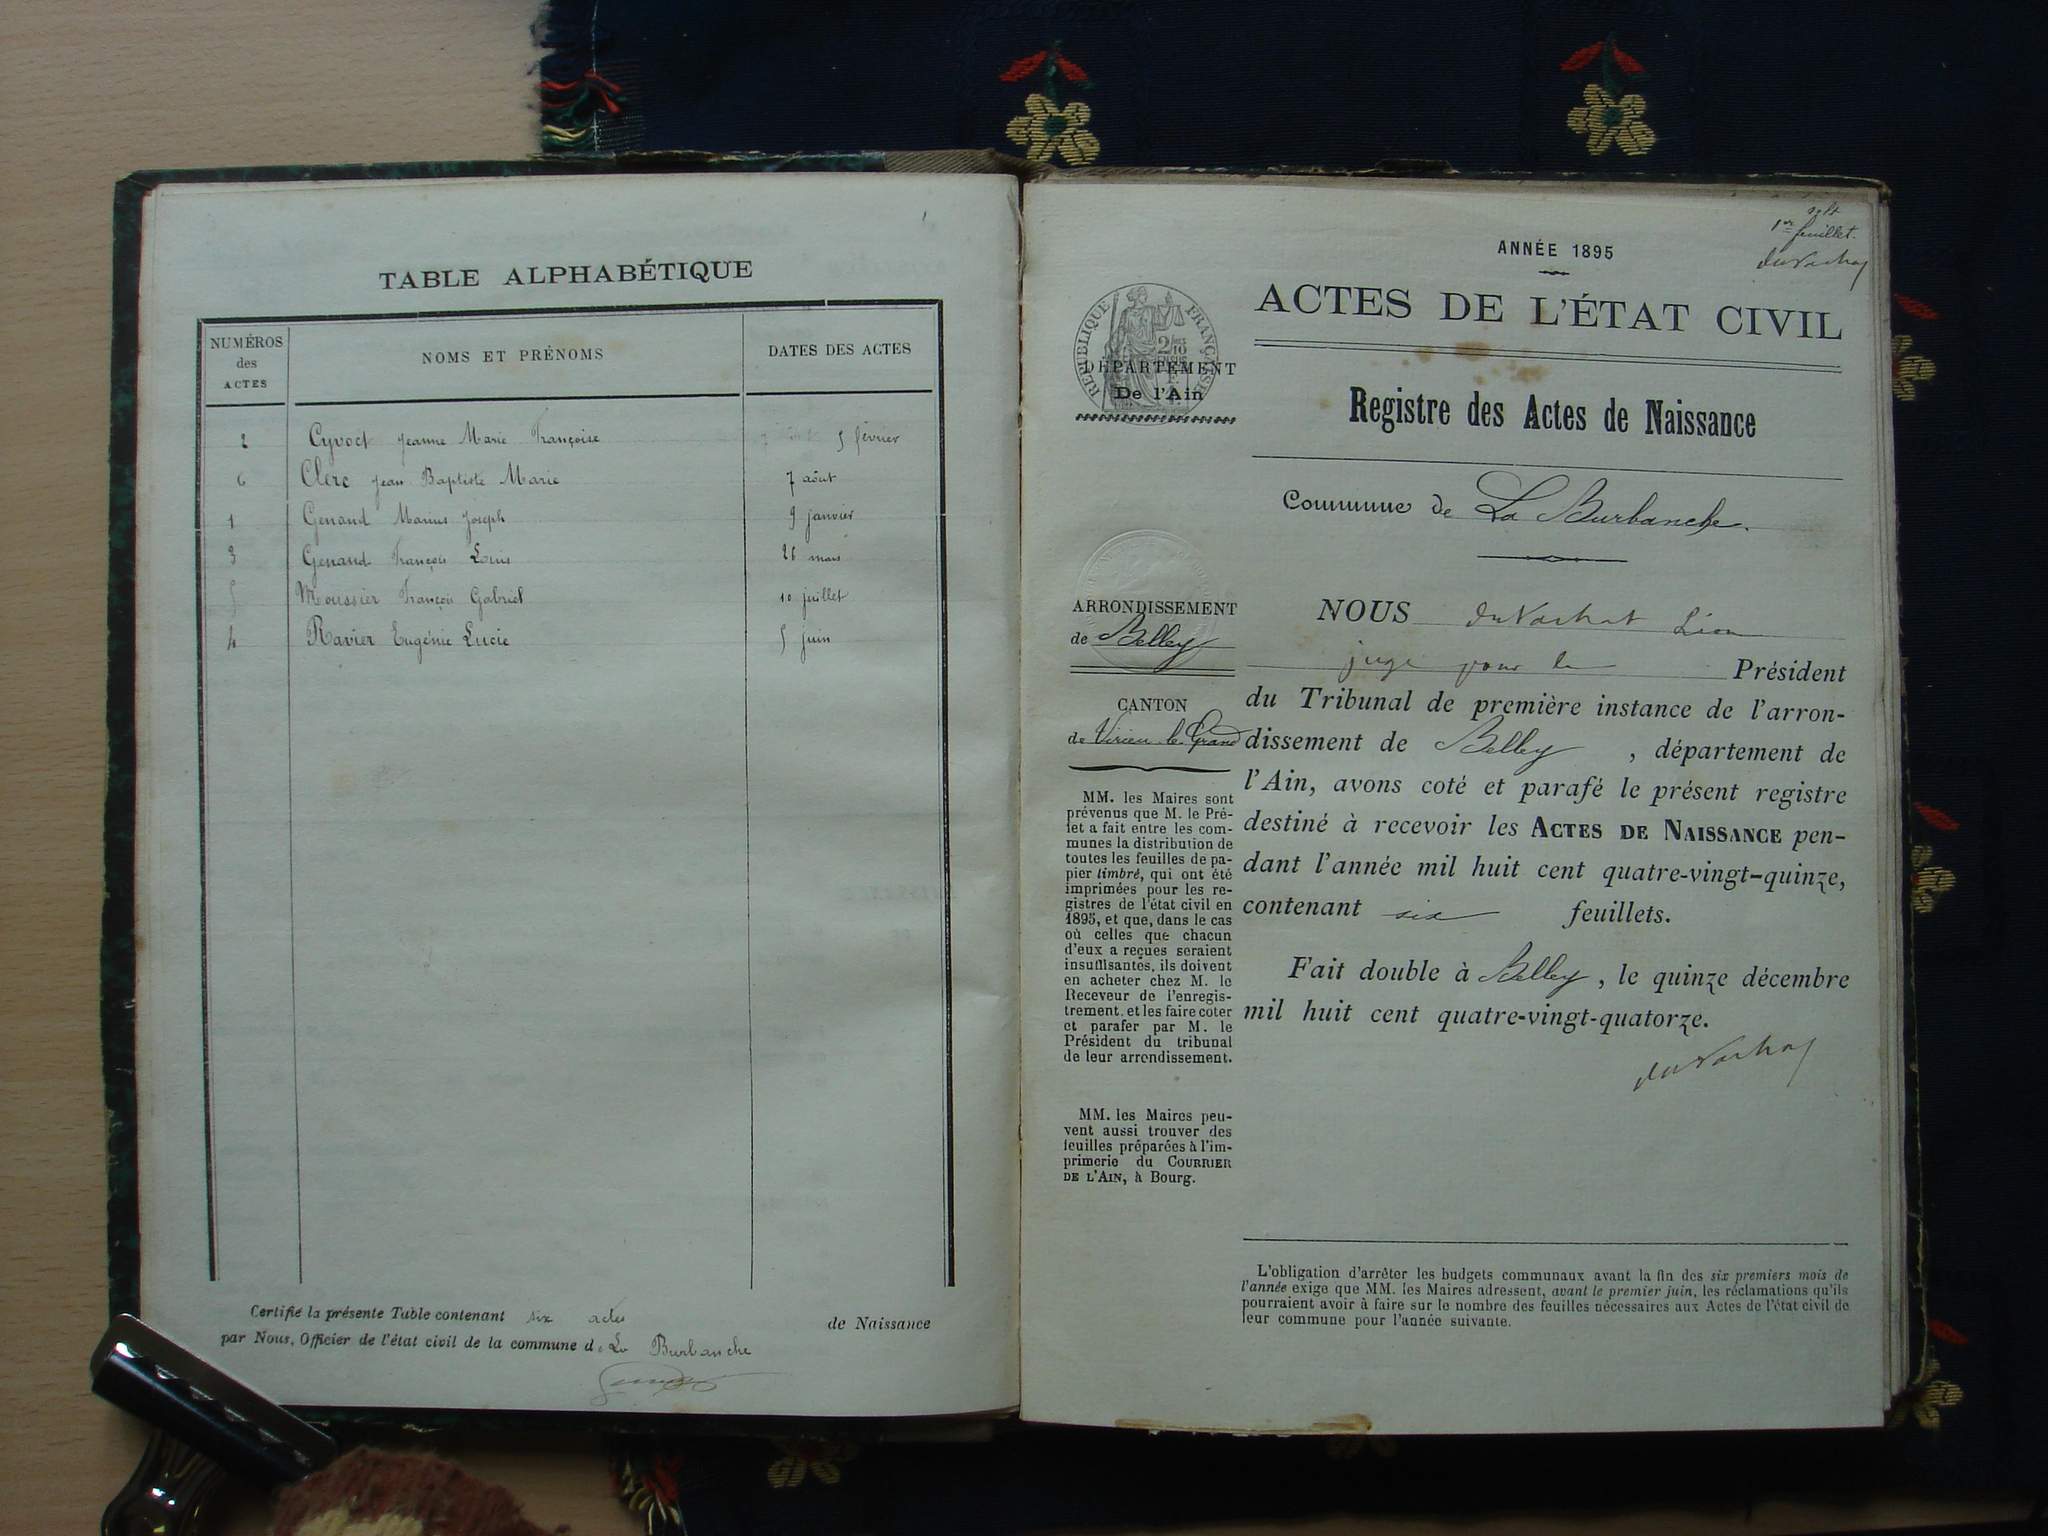 TABLE ALPHABÉTIQUE
NUMÉROS des ACTES
NOMS ET PRÉNOMS
DATES DES ACTES
2 Cyvoct Jeanne Marie Françoise 5 février
6 Clerc Jean Baptiste Marie 7 août
1 Genand Marius Joseph 9 janvier
3 Genand François Louis 26 mars
5 Moussier François Gabriel 10 juillet
4 Ravier Eugénie Lucie 5 juin
Certifié la présente Table contenant six actes de Naissance
par Nous, Officier de l'état civil de la commune de La Burbanche
1er feuillet.
ANNÉE 1895
ACTES DE L'ÉTAT CIVIL
RÉPUBLIQUE FRANÇAISE
DÉPARTEMENT
De l'Ain
Registre des Actes de Naissance
Commune de La Burbanche.
ARRONDISSEMENT
de Belley
CANTON
de Virieu-le-Grand
MM. les Maires sont
prévenus que M. le Pré-
fet a fait entre les com-
munes la distribution de
toutes les feuilles de pa-
pier timbré, qui ont été
imprimées pour les re-
gistres de l'état civil en
1895, et que, dans le cas
où celles que chacun
d'eux a reçues seraient
insuffisantes, ils doivent
en acheter chez M. le
Receveur de l'enregis-
trement, et les faire coter
et parafer par M. le
Président du tribunal
de leur arrondissement.
MM. les Maires peu-
vent aussi trouver des
feuilles préparées à l'im-
primerie du COURRIER
DE L'AIN, à Bourg.
NOUS du Vachat Léon
juge pour le Président
du Tribunal de première instance de l'arron-
dissement de Belley, département de
l'Ain, avons coté et parafé le présent registre
destiné à recevoir les ACTES DE NAISSANCE pen-
dant l'année mil huit cent quatre-vingt-quinze,
contenant six feuillets.
Fait double à Belley, le quinze décembre
mil huit cent quatre-vingt-quatorze.
du Vachat
L'obligation d'arrêter les budgets communaux avant la fin des six premiers mois de
l'année exige que MM. les Maires adressent, avant le premier juin, les réclamations qu'ils
pourraient avoir à faire sur le nombre des feuilles nécessaires aux Actes de l'état civil de
leur commune pour l'année suivante.